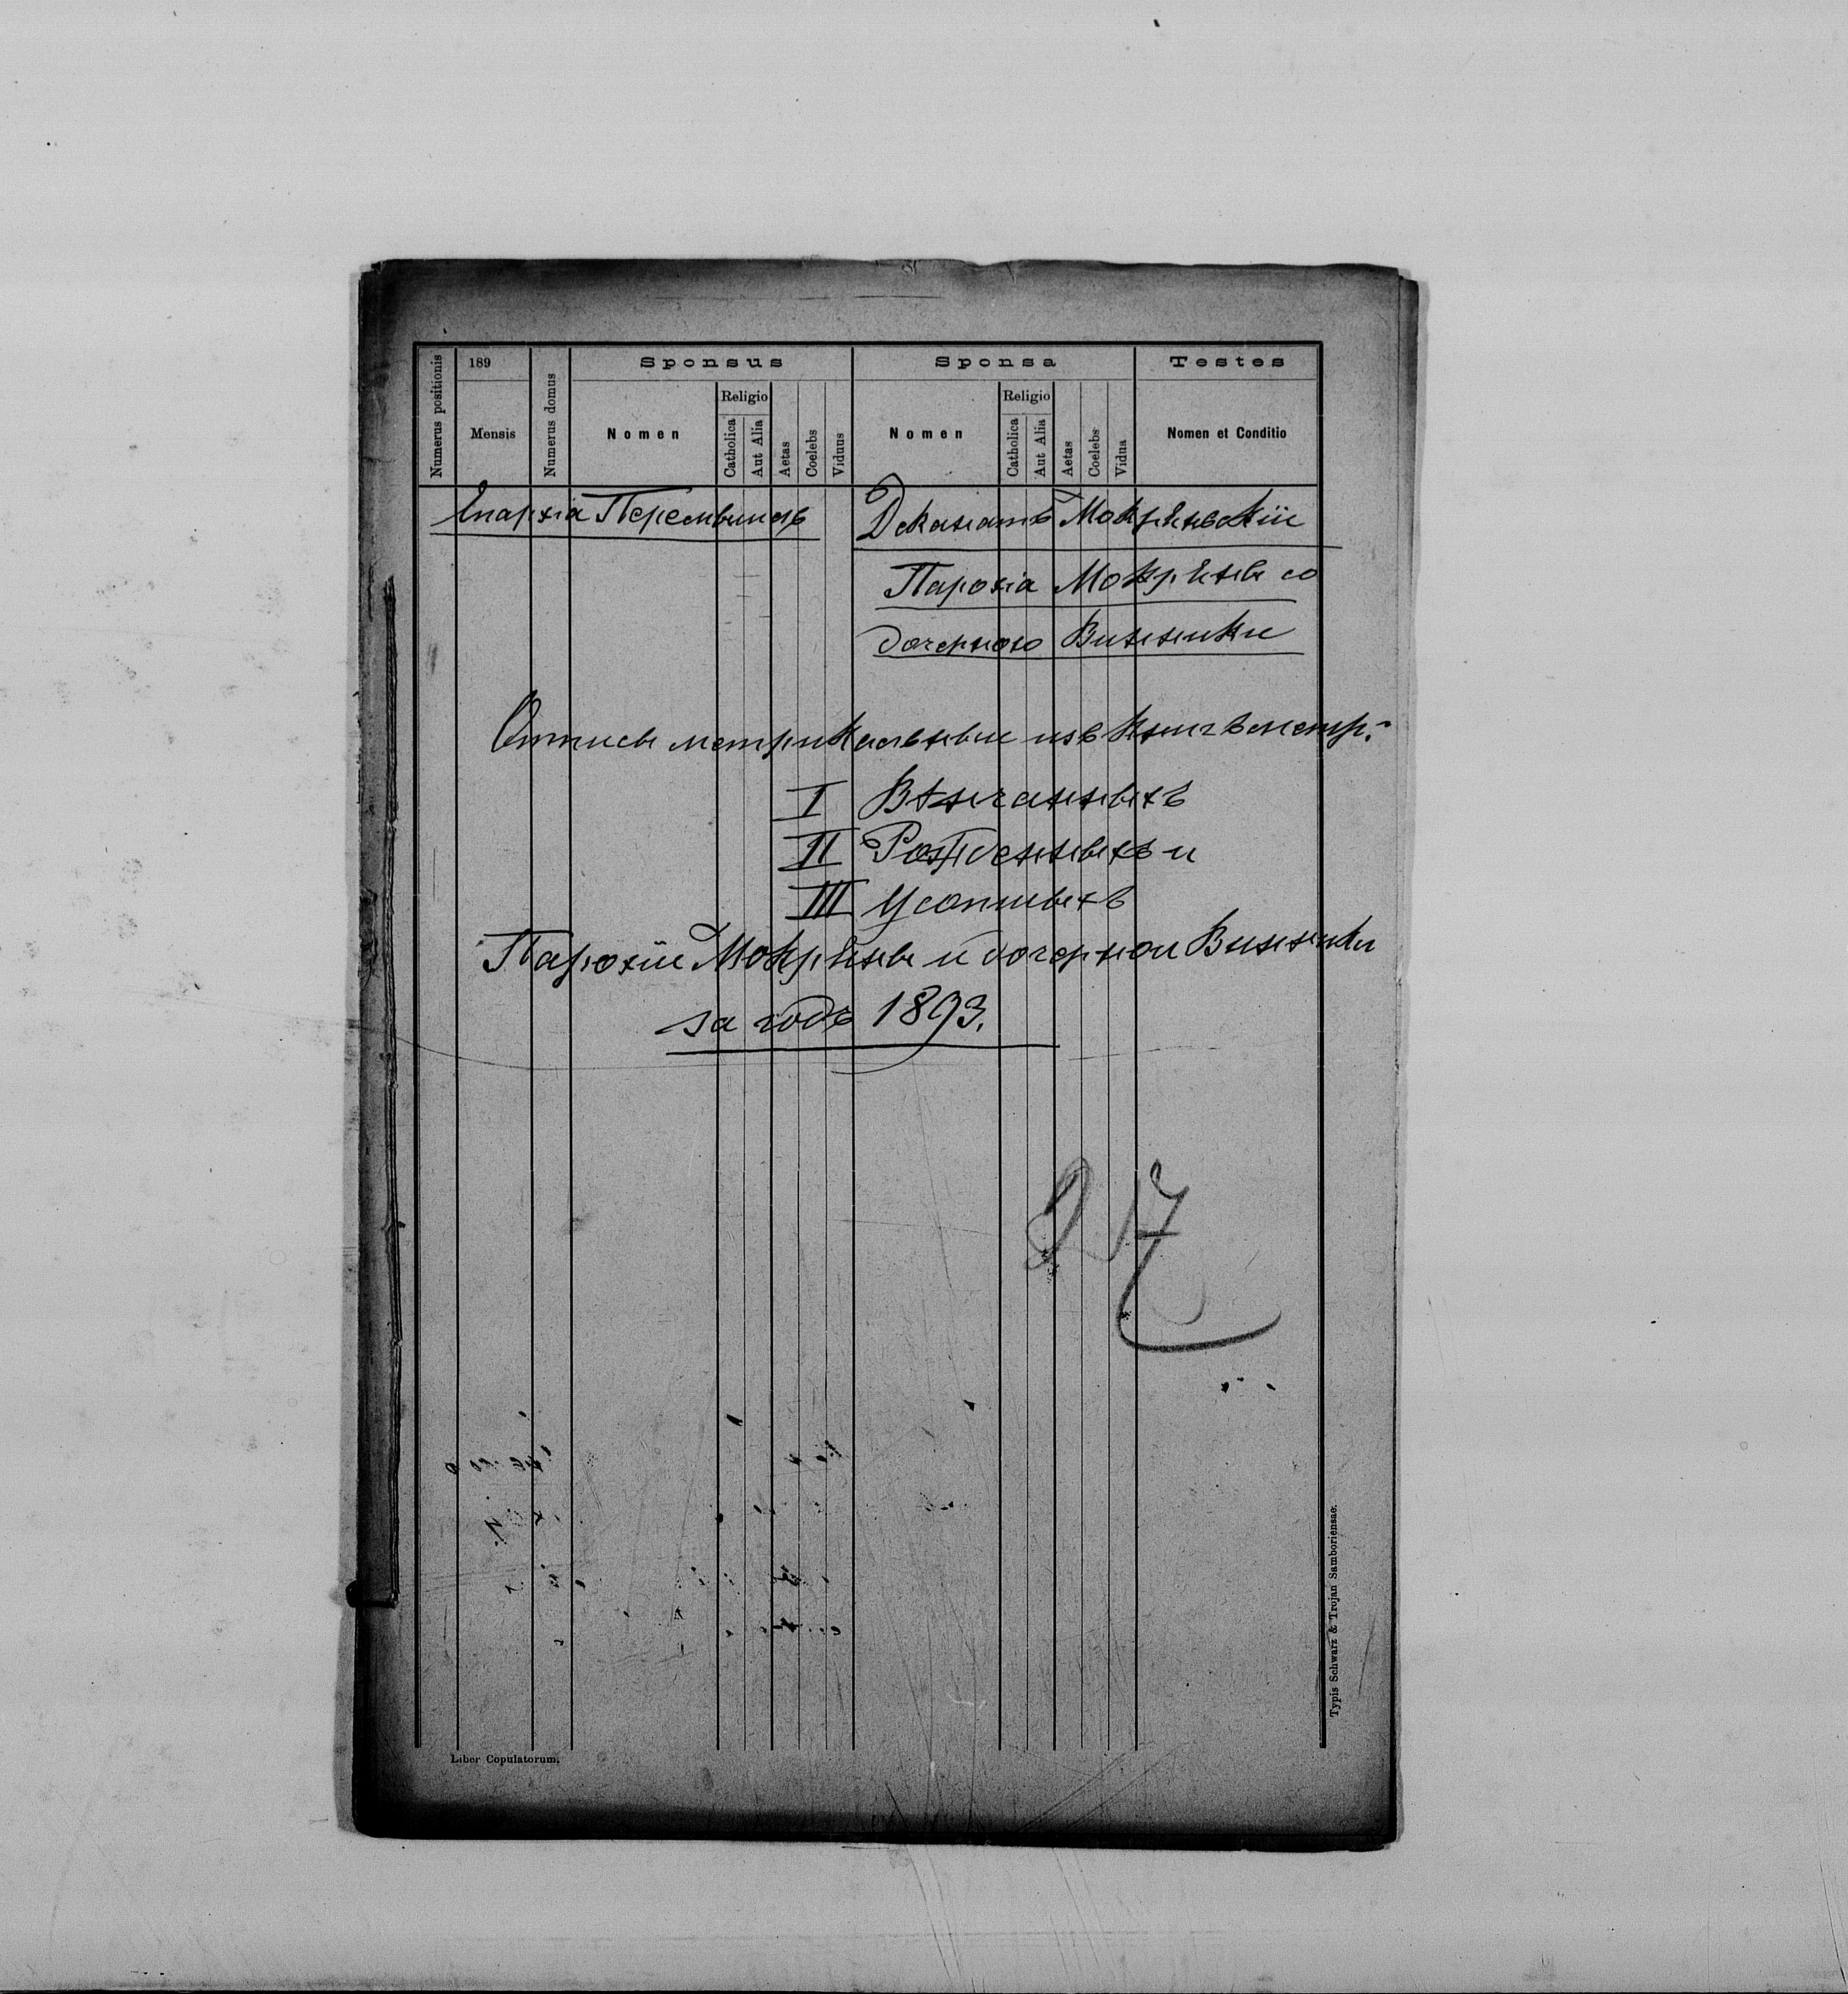 Numerus positionis 189 Numerus domus Sponsus Sponsa Testes
Mensis Nomen Religio Catholica Aut Alia Aetas Coelebs Viduus Nomen Religio Catholica Aut Alia Aetas Coelebs Vidua Nomen et Conditio
Епархіа Перемышль Деканатъ Мокрянскій
Парохіа Мокряны со
дочерною Винники
Отпись метрикальный изъ книгъ метр.:
I Вѣнчанныхъ
II Рожденныхъ и
III Усопшихъ
Парохіи Мокряны и дочерной Винники
за годъ 1893.
27
Liber Copulatorum.
Typis Schwarz & Trojan Samboriensae.